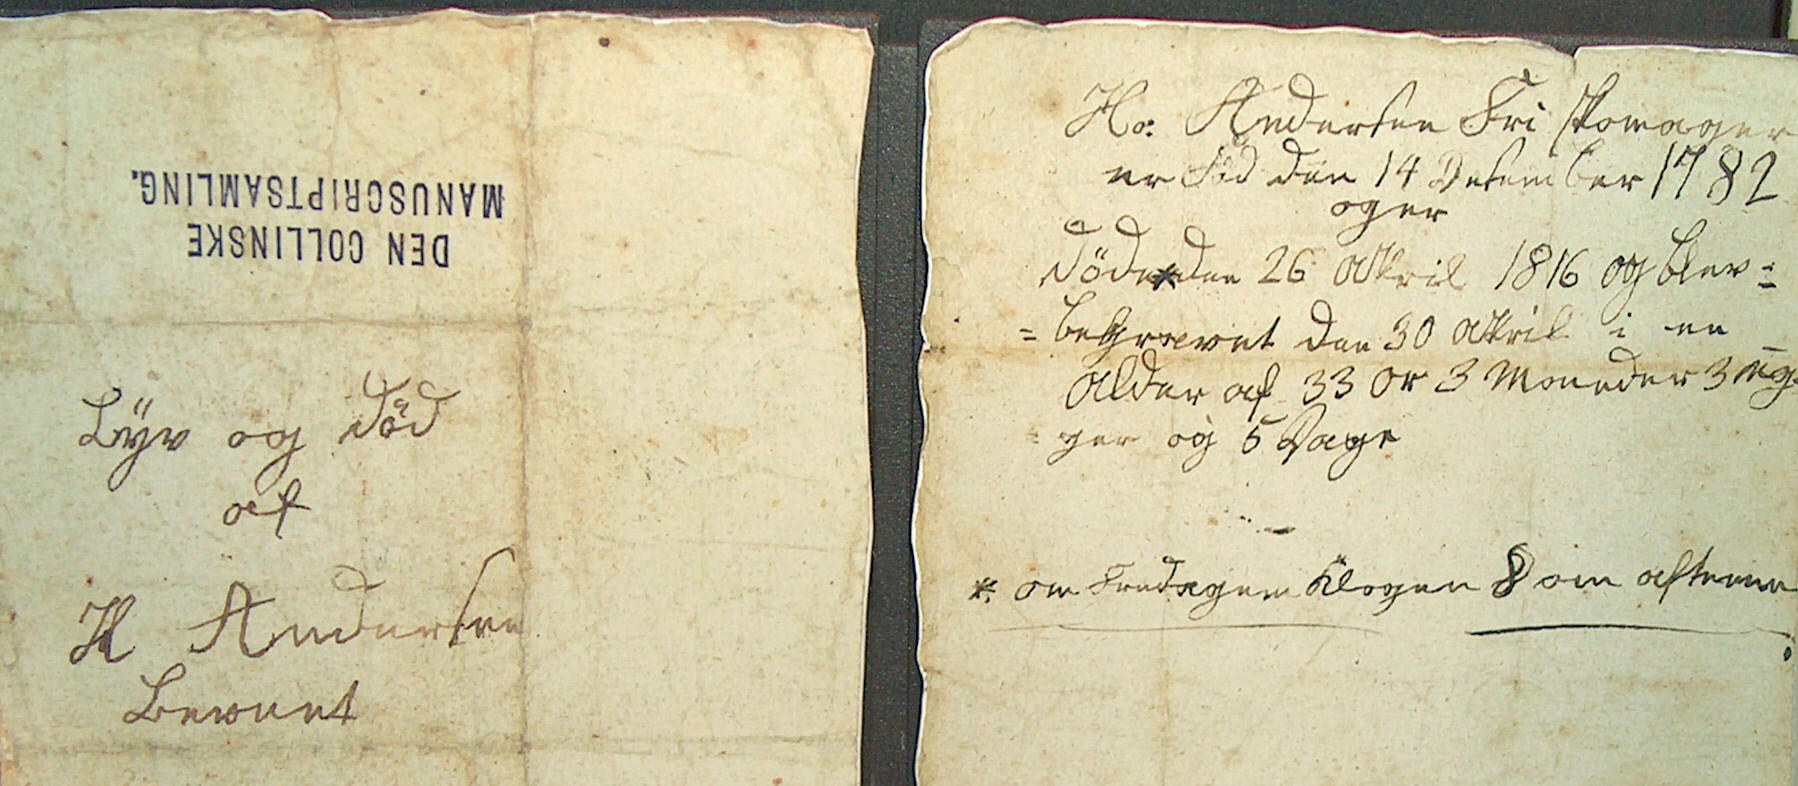 DEN COLLINSKE
MANUSCRIPTSAMLING.
Lÿv og död
af
H Andersen
Bevnet
Hr: Andersen Fri skomager
er föd den 14 Desember 1782
og er
döde * den 26 April 1816 og blev =
= begravet den 30 April i en
Alder af 33 Or 3 Moneder 3 ug-
= ger og 5 Dage
*. om Fredagen Klogen 8 om aftenen